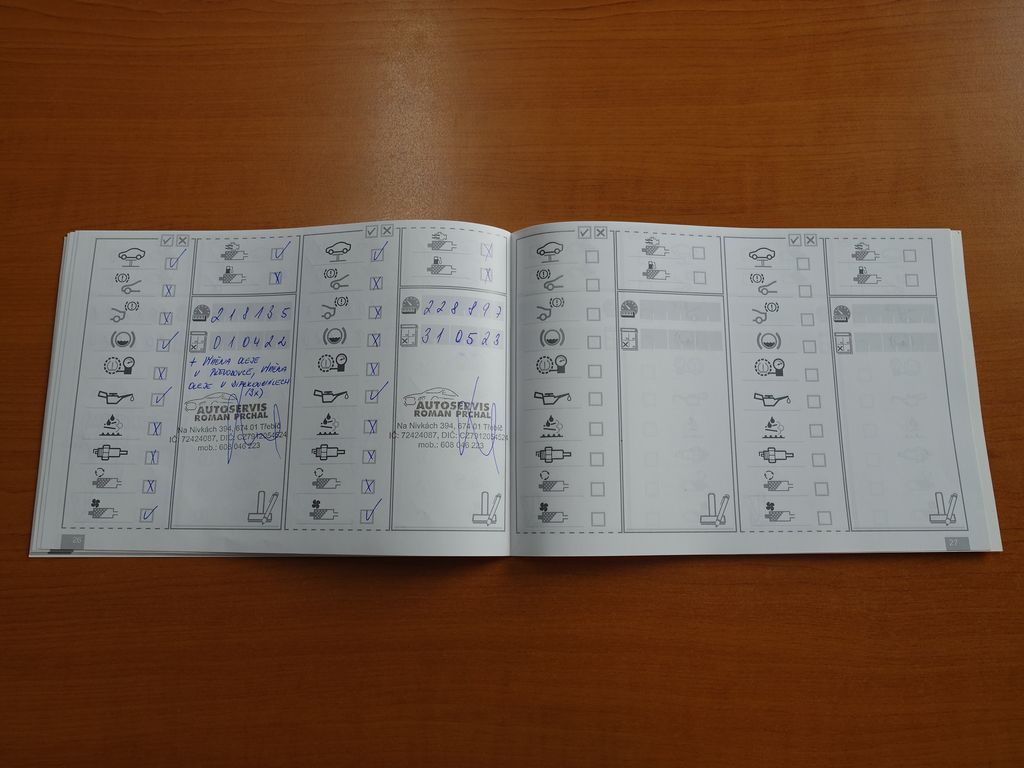 218135
010422
+ VÝMĚNA OLEJE
V PŘEVODOVCE, VÝMĚNA
OLEJE V DIFERENCIÁLECH
AUTOSERVIS
ROMAN PRCHAL
Na Nivkách 394, 674 01 Třebíč
IČ: 72424087, DIČ: CZ7912054524
mob.: 608 046 223
26
228897
310523
AUTOSERVIS
ROMAN PRCHAL
Na Nivkách 394, 674 01 Třebíč
IČ: 72424087, DIČ: CZ7912054524
mob.: 608 046 223
27